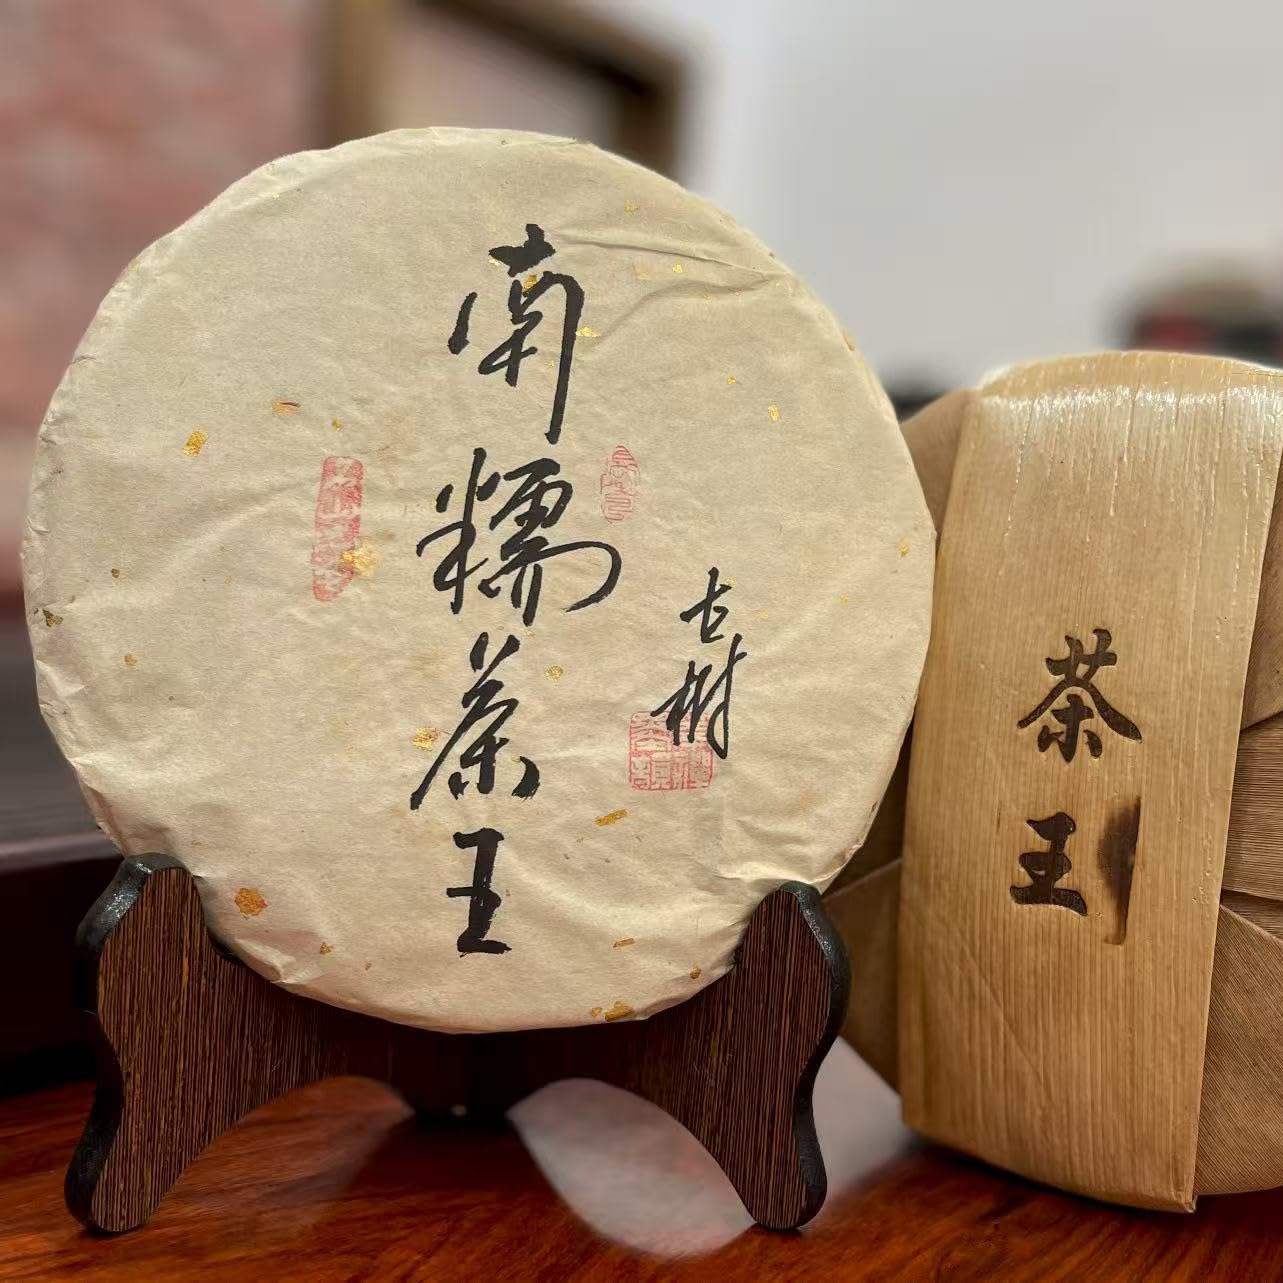 南糯茶王
古树
茶王